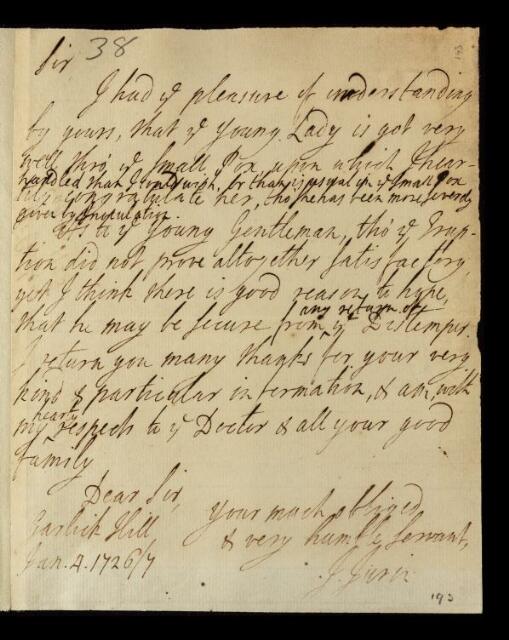 38
Sir
I had ye pleasure of understanding
by yours, that ye Young Lady is got very
well thro' ye Small Pox, upon which I hear-
handled than I could wish, or than is usual in ye Small Pox
tily congratulate her, tho' she has been more severely
given by Inoculation.
As to ye Young Gentleman, tho' ye Erup-
tion did not prove altogether satisfactory,
yet I think there is good reason to hope,
any return of
that he may be secure from ye Distemper.
I return you many thanks for your very
kind & particular information, & am, with
hearty
my respects to ye Doctor & all your good
family
Dear Sir,
your much obliged
Garlick Hill
& very humble Servant,
Jan. 4. 1726/7
J. Jurin
193